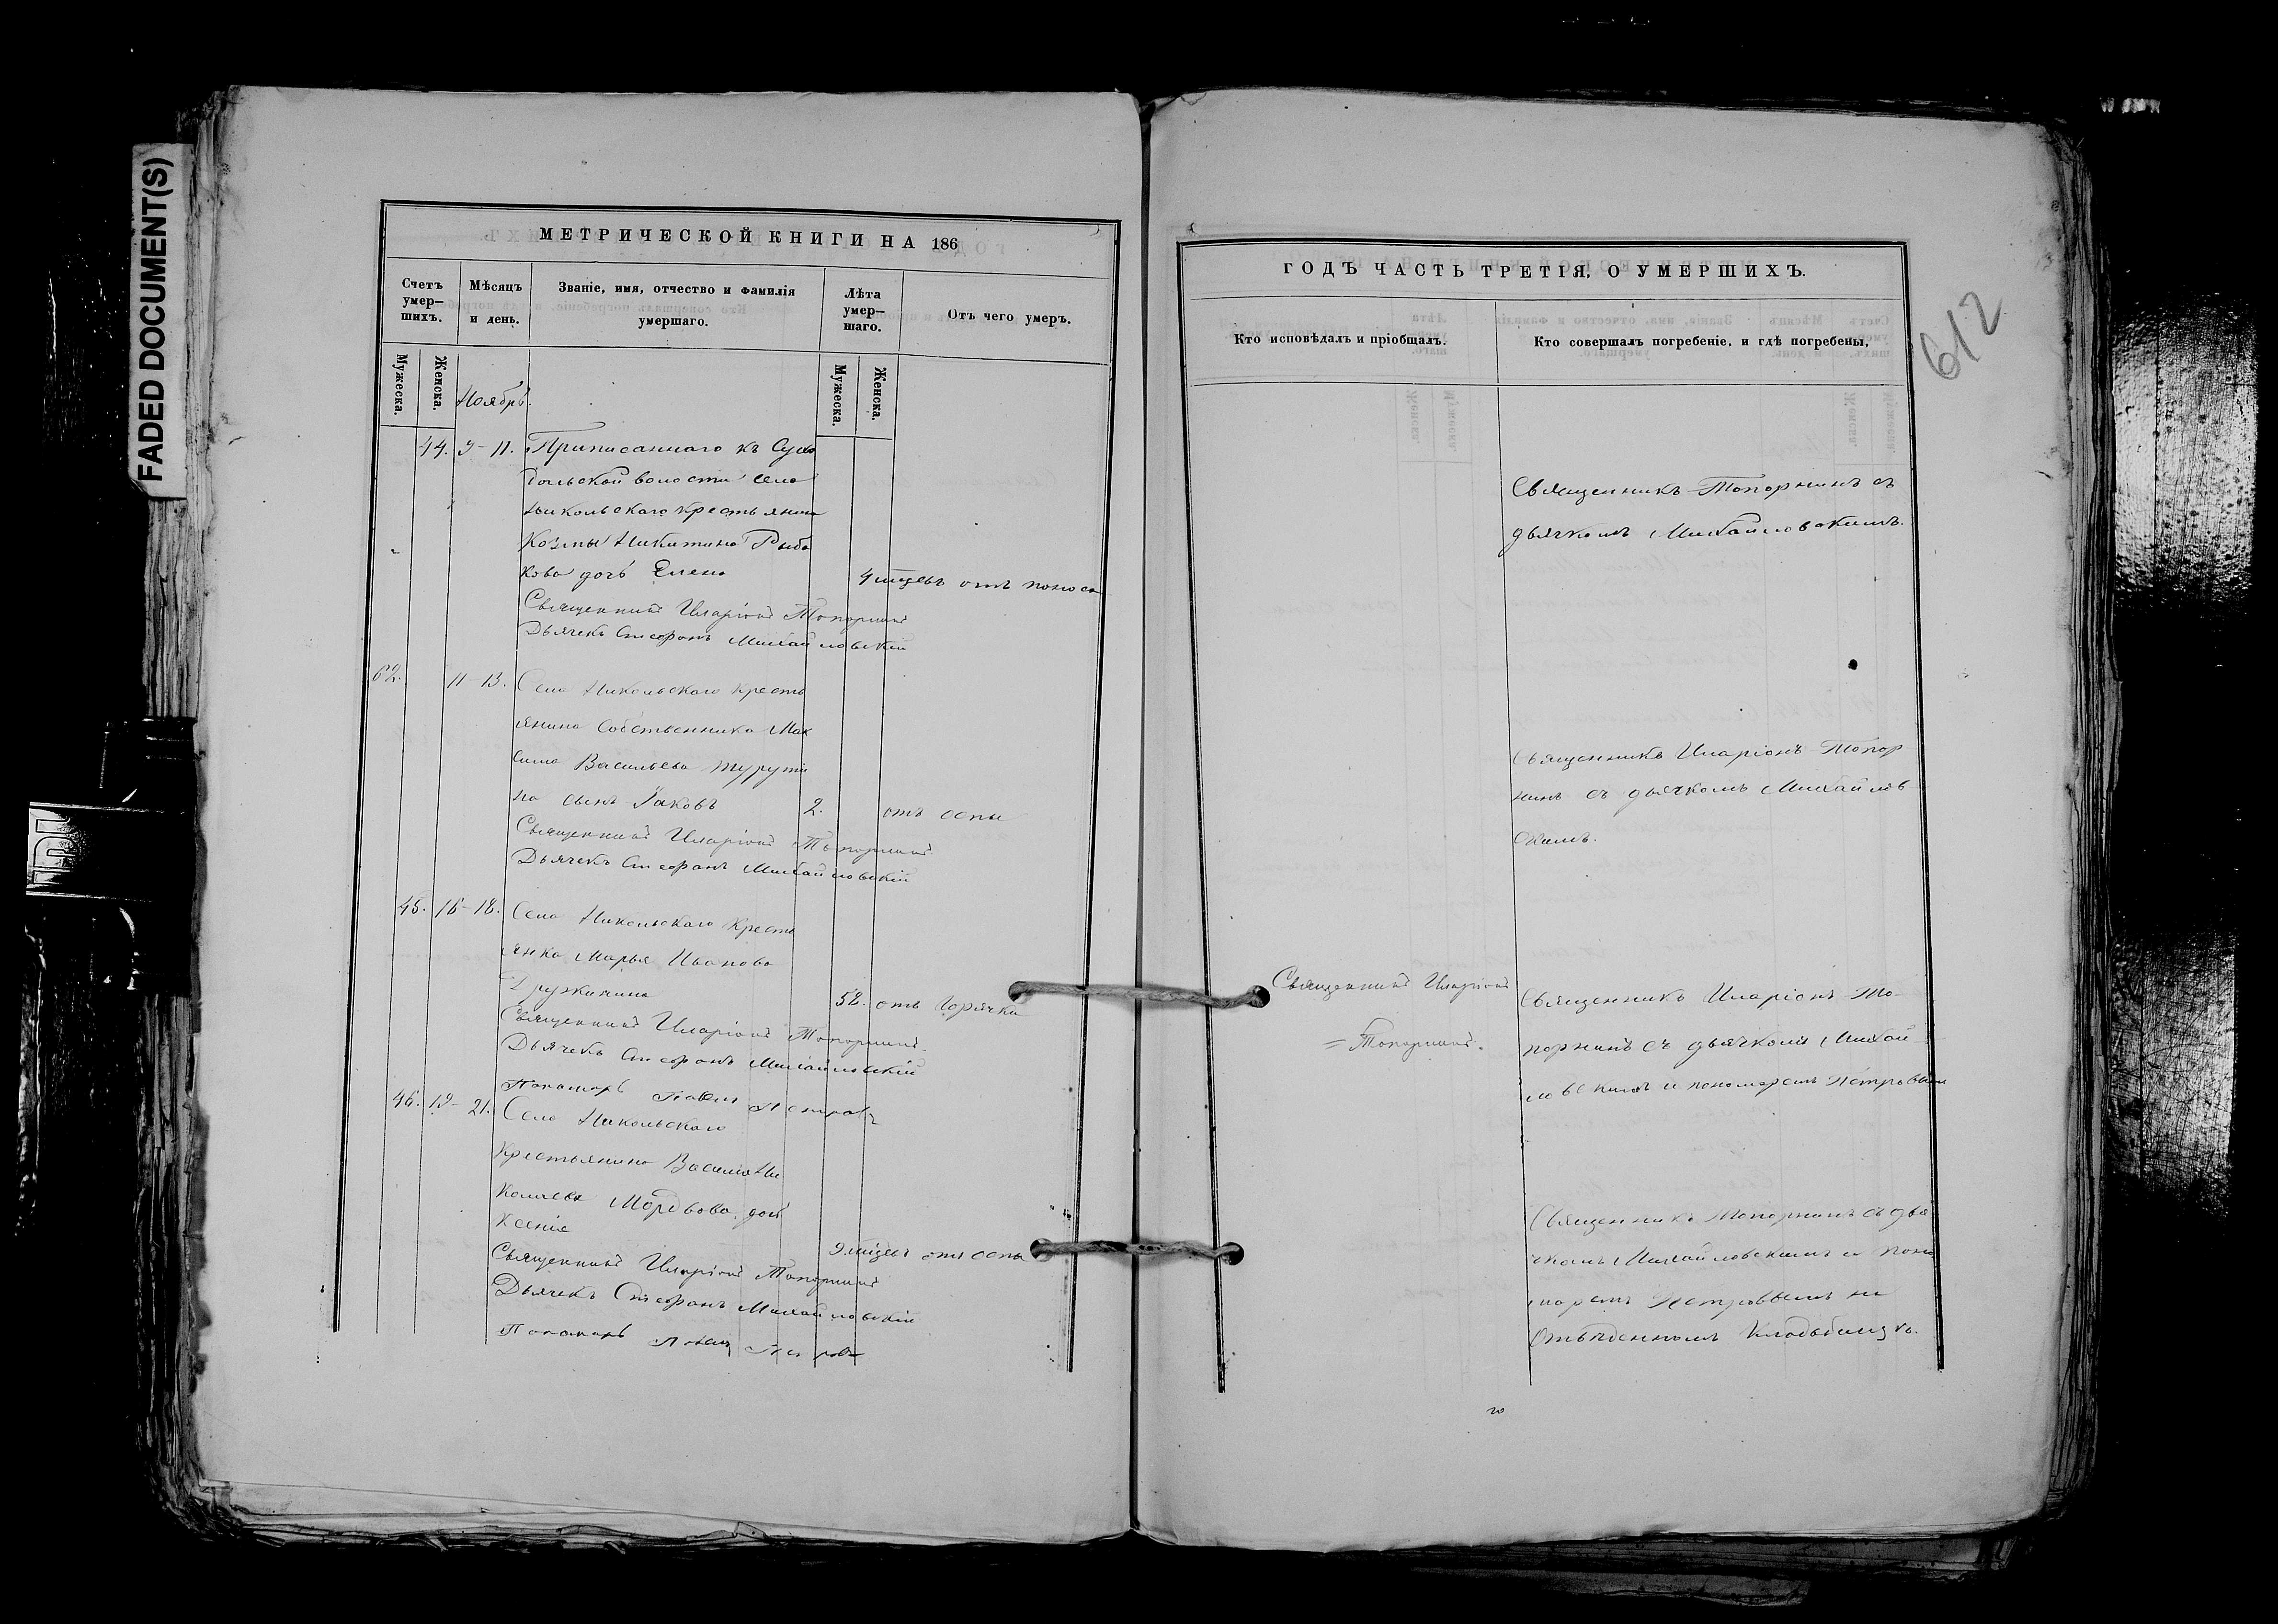 FADED DOCUMENT(S)
МЕТРИЧЕСКОЙ КНИГИ НА 186
Счетъ умер-шихъ.
Мѣсяцъ и день.
Званіе, имя, отчество и фамилія умершаго.
Лѣта умер-шаго.
Отъ чего умеръ.
Мужеска.
Женска.
Мужеска.
Женска.
Ноябрь.
44. 9-11. Приписаннаго къ Сухо
дольской волости села
Никольскаго крестьянина
Козмы Никитина Рыба
кова дочь Елена
4 мѣсцевъ отъ поноса
Священникъ Иларіонъ Топорнинъ
Дьячекъ Стефанъ Михайловскій
62. 11-13. Села Никольскаго кресть
янина собственника Мак
сима Васильева
на сынъ Іаковъ 2. отъ оспы
Священникъ Иларіонъ Топорнинъ
Дьячекъ Стефанъ Михайловскій
45. 16-18. Села Никольскаго кресть
янка Марья Иванова
Дружинина 58. отъ горячки
Священникъ Иларіонъ Топорнинъ.
Дьячекъ Стефанъ Михайловскій
Пономарь Павелъ Петровъ
46. 19-21. Села Никольскаго
крестьянина Василія Ни
колаева Мордвова дочь
Ксенія
9 мѣсцевъ отъ оспы
Священникъ Иларіонъ Топорнинъ
Дьячекъ Стефанъ Михайловскій
Пономарь Павелъ Петровъ
ГОДЪ ЧАСТЬ ТРЕТІЯ, О УМЕРШИХЪ.
612
Кто исповѣдалъ и пріобщалъ.
Кто совершалъ погребеніе, и гдѣ погребены,
Священникъ Топорнинъ съ
дьячкомъ Михайловскимъ.
Священникъ Иларіонъ Топор
нинъ съ дьячкомъ Михайлов
скимъ.
Священникъ Иларіонъ
=Топорнинъ.
Священникъ Иларіонъ То-
порнинъ съ дьячкомъ Михай
ловскимъ и пономаремъ Петровымъ
Священникъ Топорнинъ съ дья
чкомъ Михайловскимъ и поно
маремъ Петровымъ на
отведенномъ кладбищѣ.